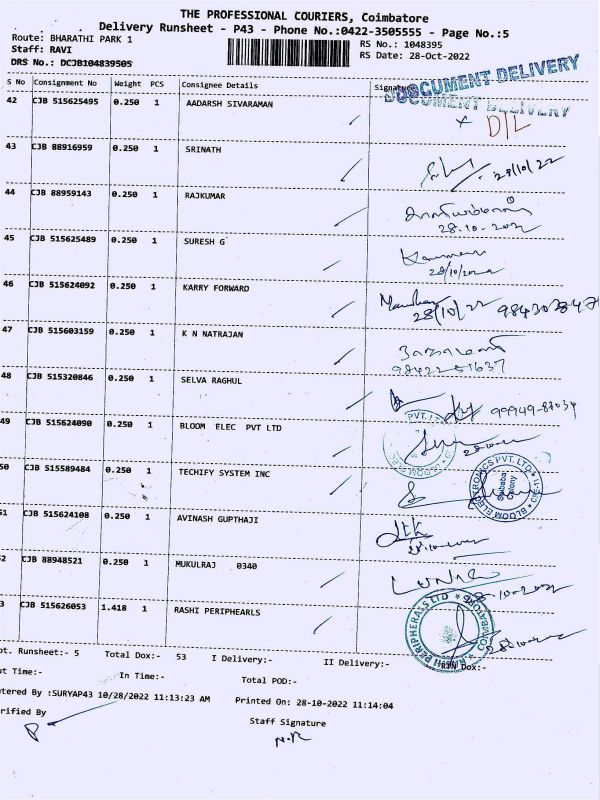 THE PROFESSIONAL COURIERS, Coimbatore
Delivery Runsheet - P43 - Phone No.:0422-3505555 - Page No.:5
Route: BHARATHI PARK 1
RS No.: 1048395
Staff: RAVI
RS Date: 28-Oct-2022
DRS No.: DCJB104839505
S No Consignment No Weight PCS Consignee Details Signature
DOCUMENT DELIVERY
DOCUMENT DELIVERY
42 CJB 515625495 0.250 1 AADARSH SIVARAMAN
D/L
43 CJB 88916959 0.250 1 SRINATH
28/10/22
44 CJB 88959143 0.250 1 RAJKUMAR
28-10-202
45 CJB 515625489 0.250 1 SURESH G
28/10/2022
46 CJB 515624092 0.250 1 KARRY FORWARD
28/10/22
47 CJB 515603159 0.250 1 K N NATRAJAN
98422-51637
48 CJB 515320846 0.250 1 SELVA RAGHUL
99949-87034
49 CJB 515624090 0.250 1 BLOOM ELEC PVT LTD
PVT. LTD
50 CJB 515589484 0.250 1 TECHIFY SYSTEM INC
BLOOM ELECTRONICS PVT. LTD.
Saibaba Colony
51 CJB 515624108 0.250 1 AVINASH GUPTHAJI
28-10-2022
52 CJB 88948521 0.250 1 MUKULRAJ 0340
28-10-2022
53 CJB 515626053 1.418 1 RASHI PERIPHEARLS
RASHI PERIPHERALS LTD * COIMBATORE *
28-10-2022
pt. Runsheet:- 5 Total Dox:- 53 I Delivery:- II Delivery:- RTN Dox:-
ut Time:- In Time:- Total POD:-
ntered By :SURYAP43 10/28/2022 11:13:23 AM Printed On: 28-10-2022 11:14:04
rified By Staff Signature
N.R